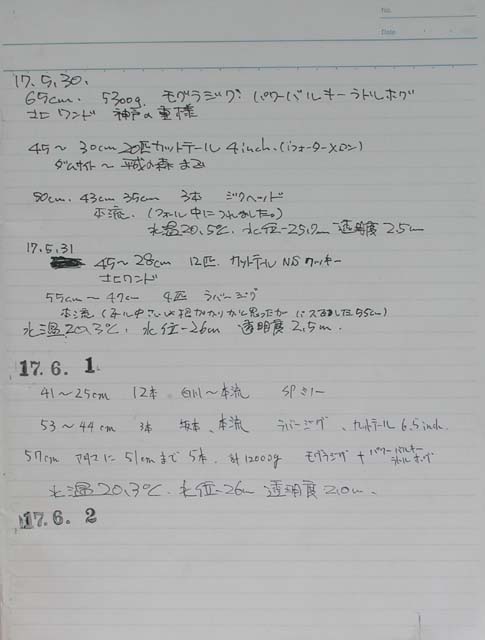 No.
Date
17.5.30.
65cm. 5300g. モグラジグ. パワーバルキーラトルホグ
北ワンド 神戸の東様
45～30cm 20匹カットテール 4inch.(
ダムサイト～平成の森まで
50cm. 43cm 35cm 3本 ジグヘッド
本流.(フォール中につれました。)
水温20.5℃. 水位-25.7m 透明度2.5m
17.5.31
45～28cm 12匹. カットテールNSワッキー
北ワンド
55cm～47cm 4匹 ラバージグ
本流
水温20.3℃. 水位-26m 透明度2.5m.
17.6. 1
41～25cm 12本 白川～本流 SPミノー
53～44cm 3本 坂本、本流 ラバージグ、カットテール6.5inch.
57cm アタマに51cmまで5本. 計12000g モグラジグ+パワーバルキー
ラトルホグ
水温20.3℃. 水位-26m 透明度2.0m.
17.6. 2